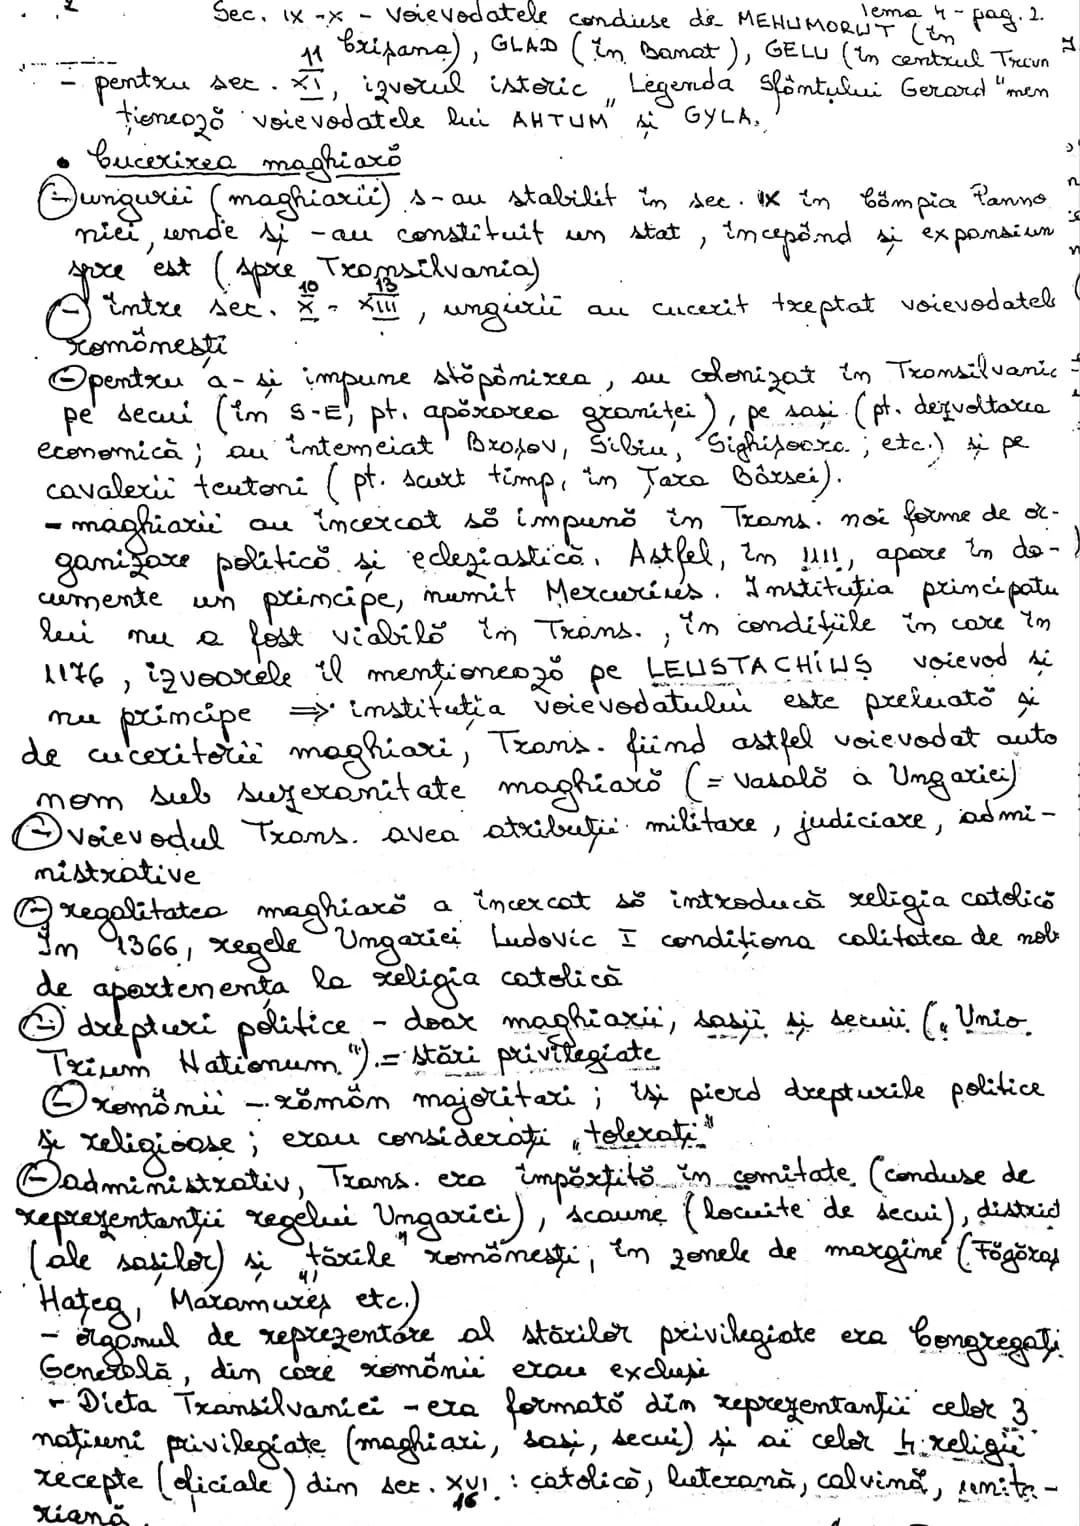 Tema 4 - pag. 2.
Sec. IX - X - Voievodatele conduse de MEHUMORUT (în
Crișana), GLAD (în Banat), GELU (în centrul Trin
11
- pentru sec. XI, izvorul istoric „Legenda Sfântului Gerard" men
ționează voievodatele lui AHTUM și GYLA.
• Cucerirea maghiară
- ungurii (maghiarii) s-au stabilit în sec. IX în Câmpia Panno
niei, unde și-au constituit un stat, începând și expansiun
spre est (spre Transilvania)
10 13
- între sec. X - XIII, ungurii au cucerit treptat voievodatele
românești
- pentru a-și impune stăpânirea, au colonizat în Transilvani
pe secui (în S-E, pt. apărarea graniței), pe sași (pt. dezvoltarea
economică; au întemeiat Brașov, Sibiu, Sighișoara; etc.) și pe
cavalerii teutoni (pt. scurt timp, în Țara Bârsei).
- maghiarii au încercat să impună în Trans. noi forme de or-
ganizare politică și eclesiastică. Astfel, în 1111, apare în do-
cumente un principe, numit Mercurius. Instituția principatu
lui nu a fost viabilă în Trans., în condițiile în care în
1176, izvoarele îl menționează pe LEUSTACHIUS voievod și
nu principe => instituția voievodatului este preluată și
de cuceritorii maghiari, Trans. fiind astfel voievodat auto
nom sub suzeranitate maghiară (= vasală a Ungariei)
- voievodul Trans. avea atribuții militare, judiciare, admi-
nistrative
- regalitatea maghiară a încercat să introducă religia catolică
În 1366, regele Ungariei Ludovic I condiționa calitatea de nobi
de apartenența la religia catolică
- drepturi politice - doar maghiarii, sașii și secuii („Unio
Trium Nationum") = stări privilegiate
- românii - rămân majoritari; își pierd drepturile politice
și religioase; erau considerați „tolerați"
- administrativ, Trans. era împărțită în comitate (conduse de
reprezentanții regelui Ungariei), scaune (locuite de secui), district
(ale sașilor) și „țările" românești, în zonele de margine (Făgăraș
Hațeg, Maramureș etc.)
- organul de reprezentare al stărilor privilegiate era Congregați
Generală, din care românii erau excluși
- Dieta Transilvaniei - era formată din reprezentanții celor 3
națiuni privilegiate (maghiari, sași, secui) și ai celor 4 religii
recepte (oficiale) din sec. XVI : catolică, luterană, calvină, unita-
16
riană.